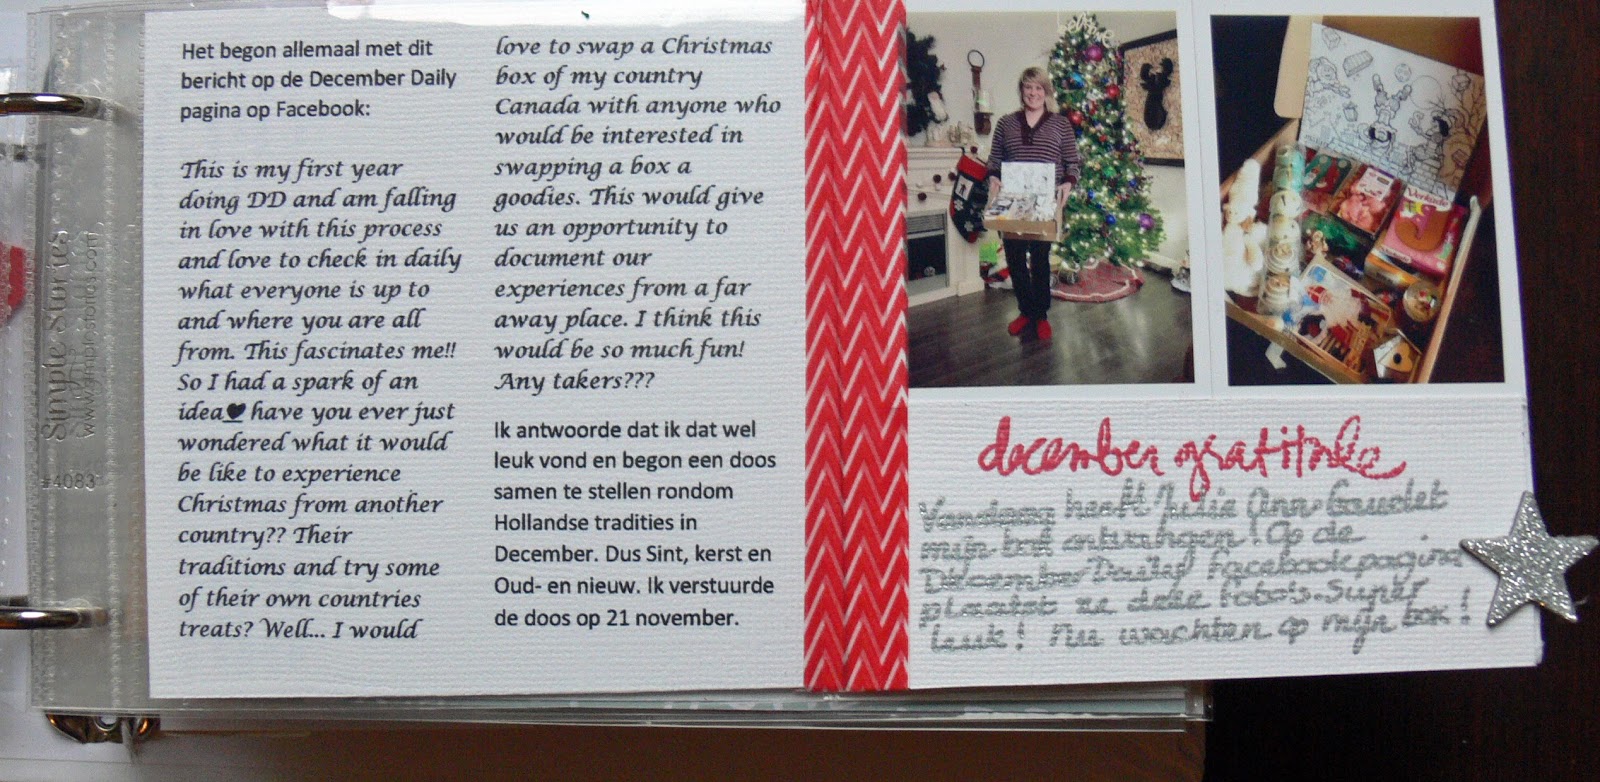 Het begon allemaal met dit
bericht op de December Daily
pagina op Facebook:
This is my first year
doing DD and am falling
in love with this process
and love to check in daily
what everyone is up to
and where you are all
from. This fascinates me!!
So I had a spark of an
idea♥ have you ever just
wondered what it would
be like to experience
Christmas from another
country?? Their
traditions and try some
of their own countries
treats? Well... I would
love to swap a Christmas
box of my country
Canada with anyone who
would be interested in
swapping a box a
goodies. This would give
us an opportunity to
document our
experiences from a far
away place. I think this
would be so much fun!
Any takers???
Ik antwoorde dat ik dat wel
leuk vond en begon een doos
samen te stellen rondom
Hollandse tradities in
December. Dus Sint, kerst en
Oud- en nieuw. Ik verstuurde
de doos op 21 november.
december gratitude
Vandaag heeft Julie Ann Gaudet
mijn box ontvangen! Op de
December Daily Facebookpagina
plaatst ze deze foto's. Super
leuk! Nu wachten op mijn box!
Simple Stories
www.simplestories.com
#4083
Verkade